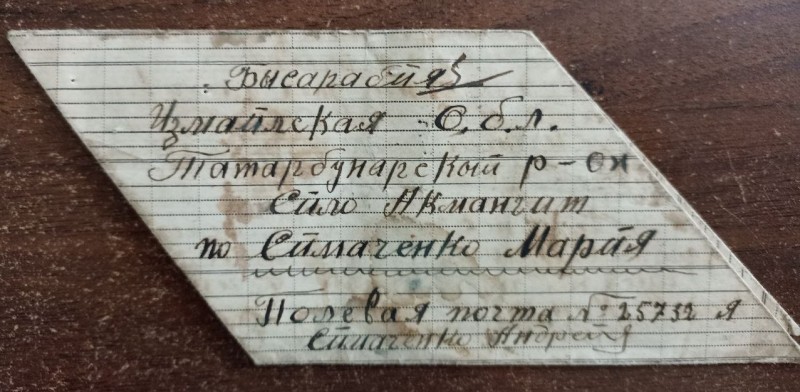 Бысарабйя
Измайлская О.б.л.
Татарбунарский р-он
Сйло Акмангит
по Сймаченко Марйя
Полевая почта № 25732 Я
Сймаченко Андрейя